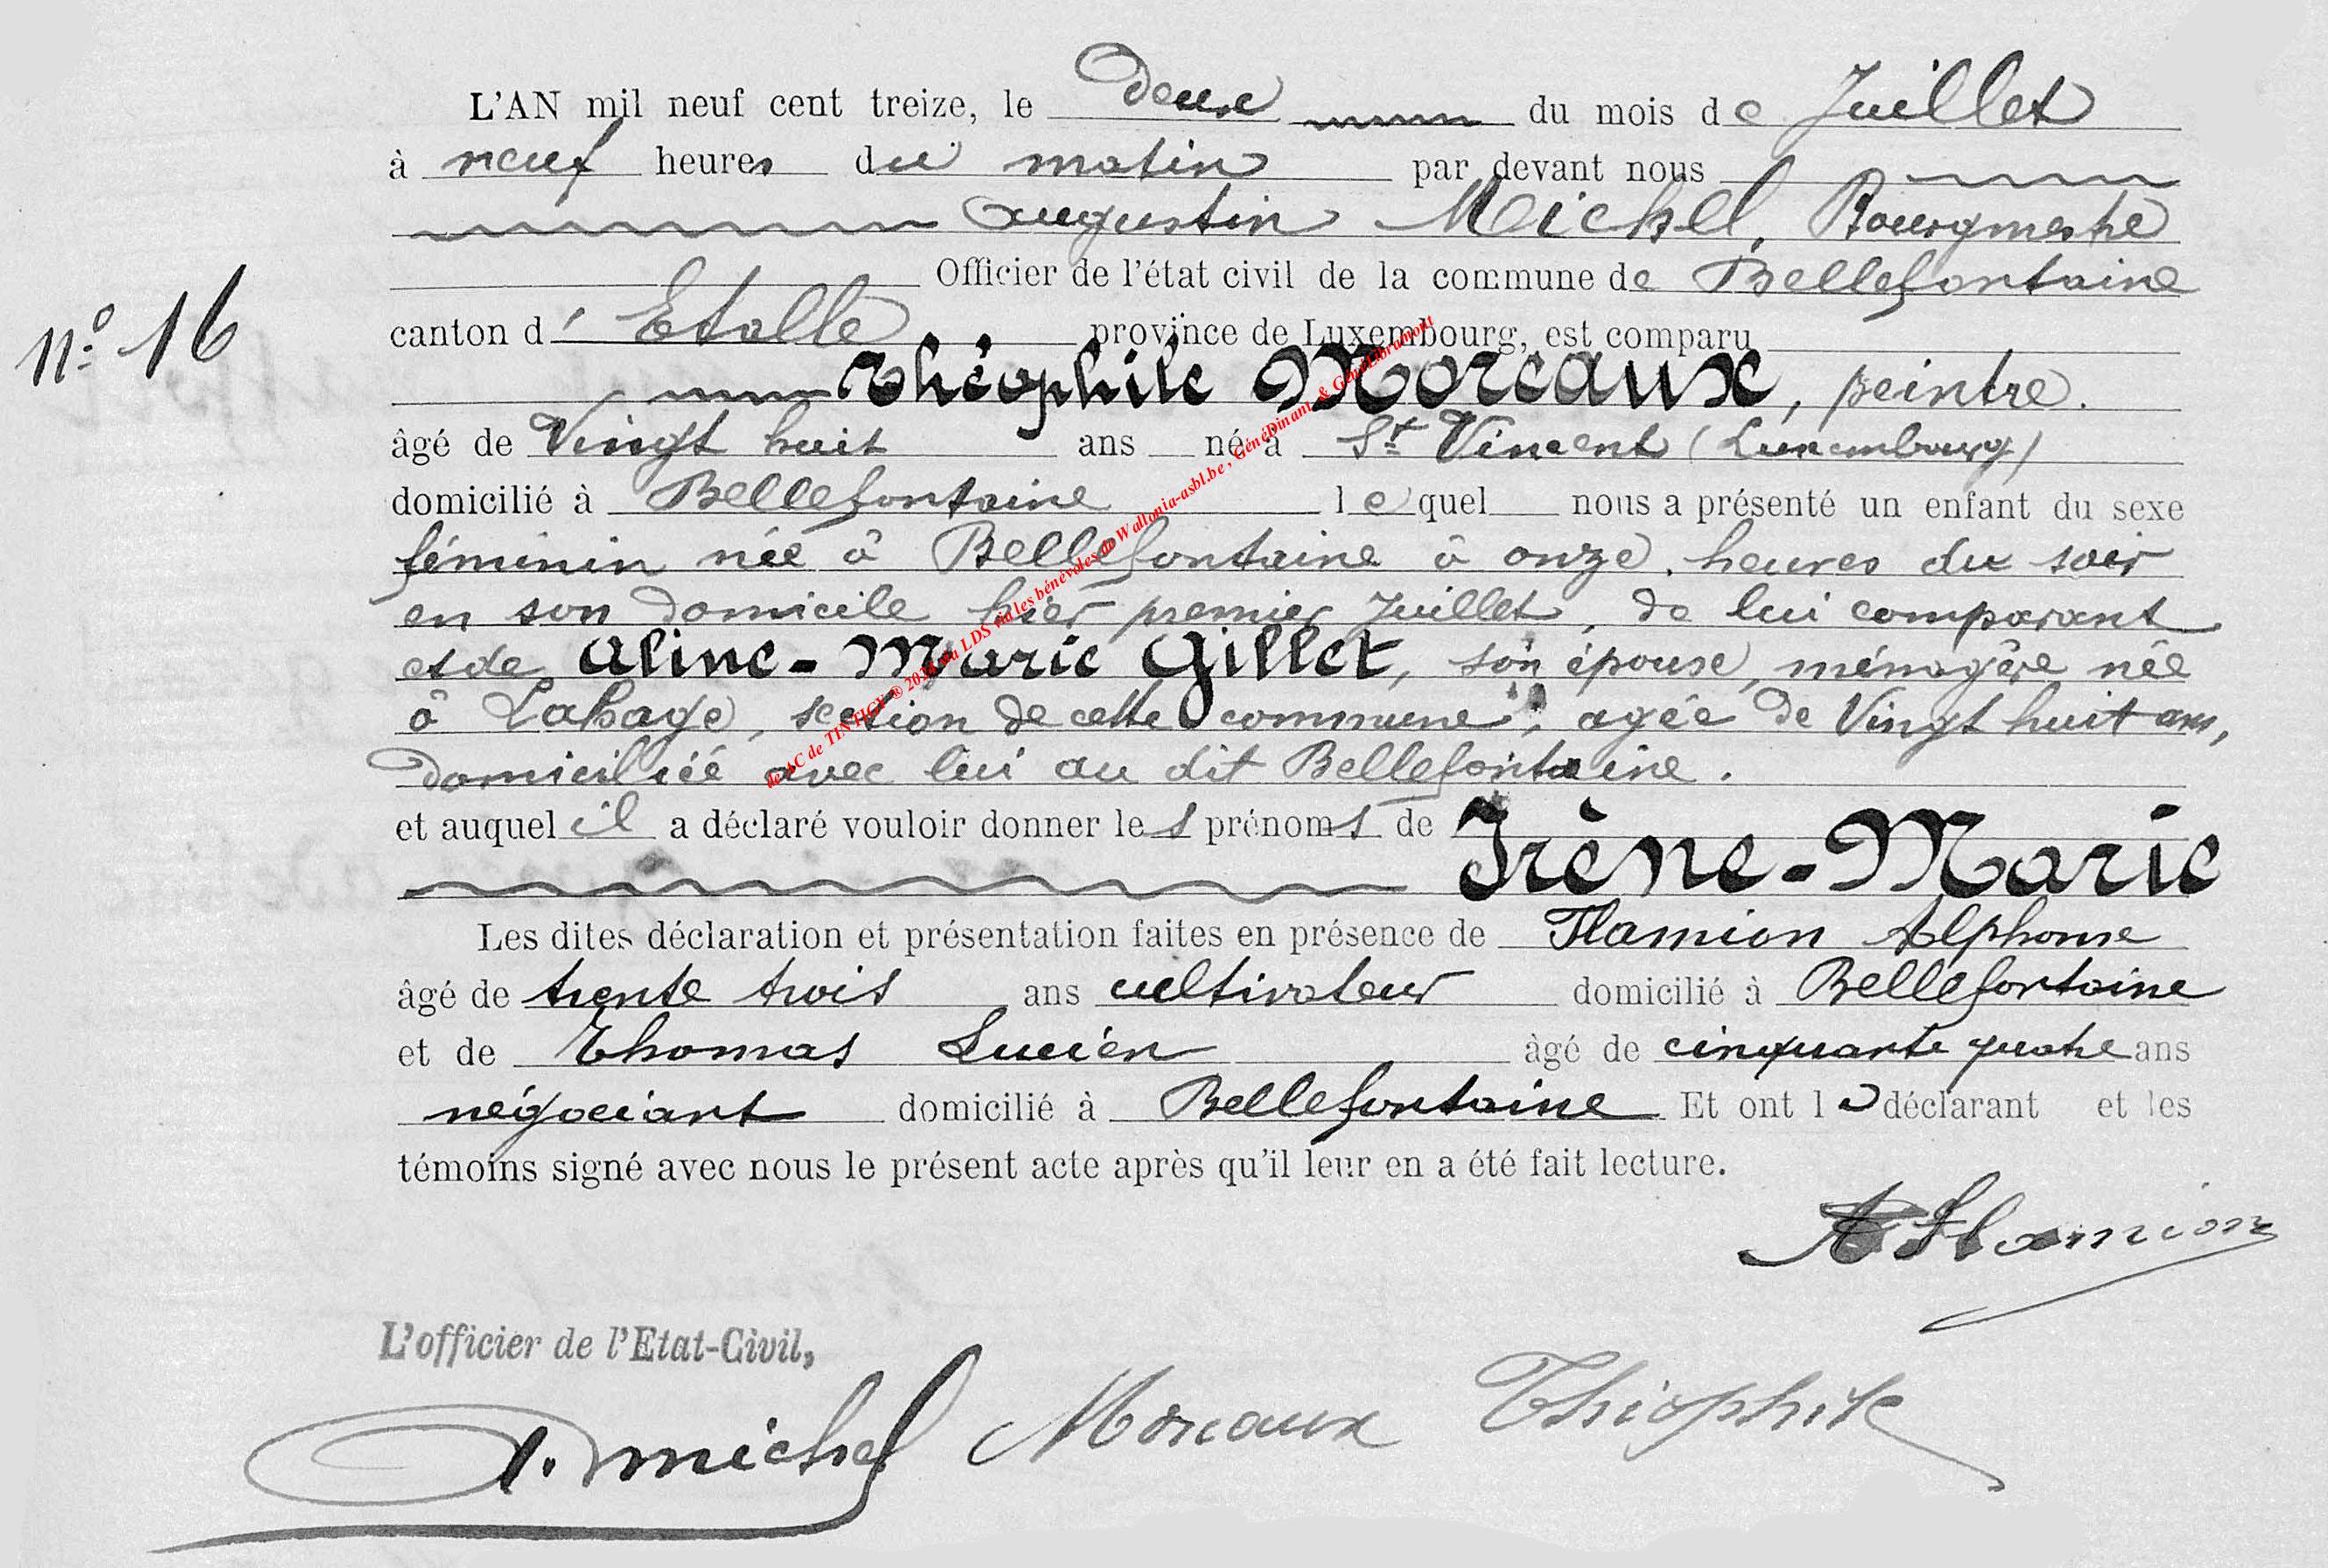 L'AN mil neuf cent treize, le deux du mois de Juillet
à neuf heures du matin par devant nous
Augustin Michel, Bourgmestre
Officier de l'état civil de la commune de Bellefontaine
n° 16
canton d' Etalle province de Luxembourg, est comparu
Théophile Moreaux, peintre.
âgé de Vingt huit ans né à St Vincent (Luxembourg)
domicilié à Bellefontaine lequel nous a présenté un enfant du sexe
féminin née à Bellefontaine à onze heures du soir
en son domicile hier premier Juillet, de lui comparant
et de Aline-Marie Gillet, son épouse, ménagère née
à Lahage, section de cette commune, agée de Vingt huit ans,
domiciliée avec lui au dit Bellefontaine.
et auquel il a déclaré vouloir donner les prénoms de Irène-Marie
Les dites déclaration et présentation faites en présence de Flamion Alphonse
âgé de trente trois ans cultivateur domicilié à Bellefontaine
et de Thomas Lucien âgé de cinquante quatre ans
négociant domicilié à Bellefontaine Et ont le déclarant et les
témoins signé avec nous le présent acte après qu'il leur en a été fait lecture.
A Flamion
L'officier de l'Etat-Civil,
A. Michel Moreaux Théophile
de AC de TINTIGY ® 2024 au LDS via les bénévoles de Wallonia-asbl.be, GénéDinant & GénéLibramont